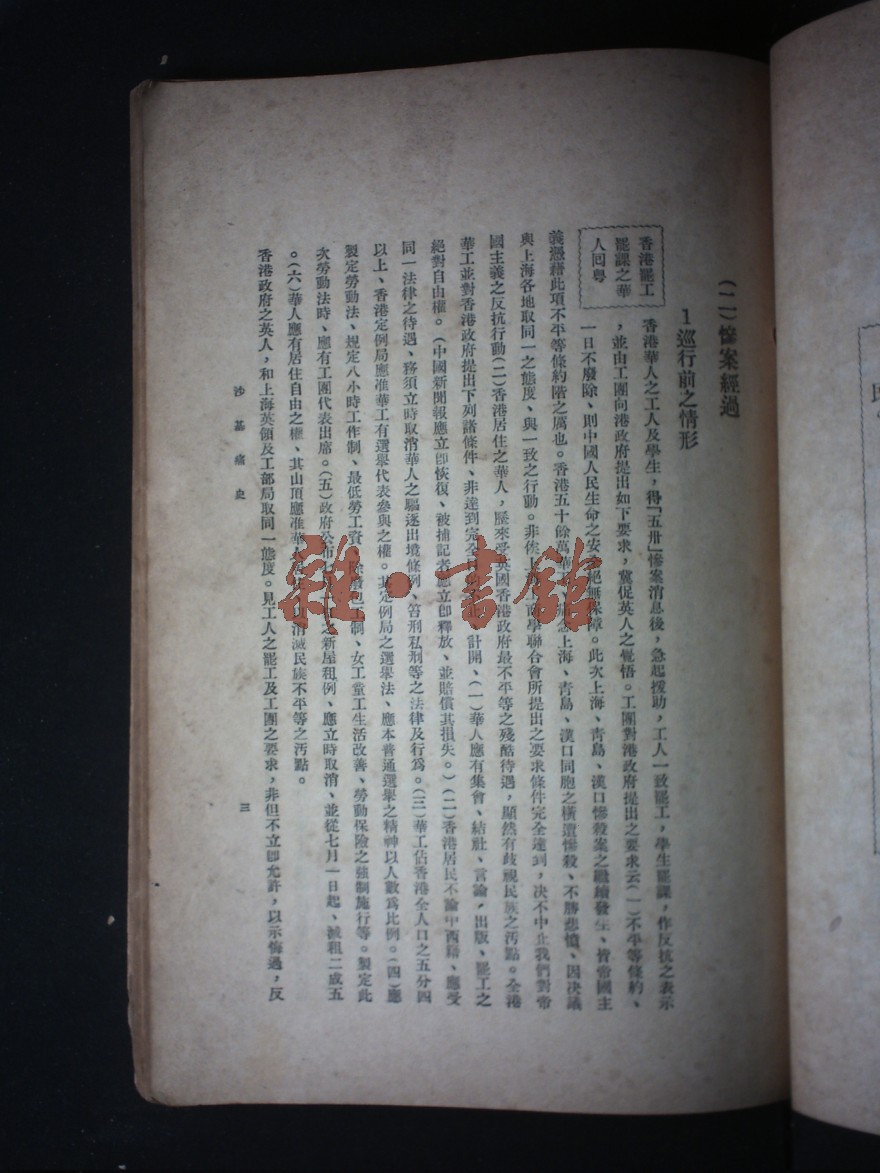 （二）慘案經過
1 巡行前之情形
香港罷工
罷課之華
人回粵
香港華人之工人及學生，得「五卅」慘案消息後，急起援助，工人一致罷工，學生罷課，作反抗之表示
，並由工團向港政府提出如下要求，冀促英人之覺悟。工團對港政府提出之要求云（一）不平等條約、
一日不廢除、則中國人民生命之安 絕無保障。此次上海、青島、漢口慘殺案之繼續發生、皆帝國主
義憑藉此項不平等條約階之厲也。香港五十餘萬華 念上海、青島、漢口同胞之橫遭慘殺、不勝悲憤、因決議
與上海各地取同一之態度、與一致之行動。非俟上 學聯合會所提出之要求條件完全達到，決不中止我們對帝
國主義之反抗行動（二）香港居住之華人，歷來受英國香港政府最不平等之殘酷待遇，顯然有歧視民族之污點。全港
華工並對香港政府提出下列諸條件、非達到完全 計開、（一）華人應有集會、結社、言論、出版、罷工之
絕對自由權。（中國新聞報應立即恢復、被捕記者應立即釋放、並賠償其損失。）（二）香港居民不論中西籍、應受
同一法律之待遇、務須立時取消華人之驅逐出境條例、笞刑私刑等之法律及行爲。（三）華工佔香港全人口之五分四
以上、香港定例局應准華工有選舉代表參與之權。其定例局之選舉法、應本普通選舉之精神以人數爲比例。（四）應
製定勞動法、規定八小時工作制、最低勞工資、除廢包工制、女工童工生活改善、勞動保險之強制施行等。製定此
次勞動法時、應有工團代表出席。（五）政府公布七月一日之新屋租例、應立時取消、並從七月一日起、減租二成五
。（六）華人應有居住自由之權、其山頂應准華人 消滅民族不平等之污點。
香港政府之英人，和上海英領及工部局取同一態度。見工人之罷工及工團之要求，非但不立即允許，以示悔過，反
沙基痛史
三
雜·書館